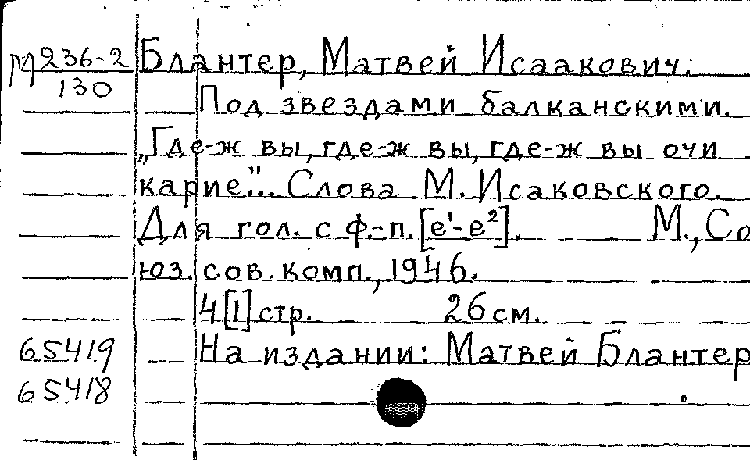 М 236-2 Блантер, Матвей Исаакович.
130 Под звездами балканскими.
„Где-ж вы, где-ж вы, где-ж вы очи
карие". Слова М. Исаковского.
Для гол. с ф.-п. [e¹-e²]. М., Со
юз. сов. комп., 1946.
4 [1] стр. 26 см.
65419 На издании: Матвей Блантер
65418